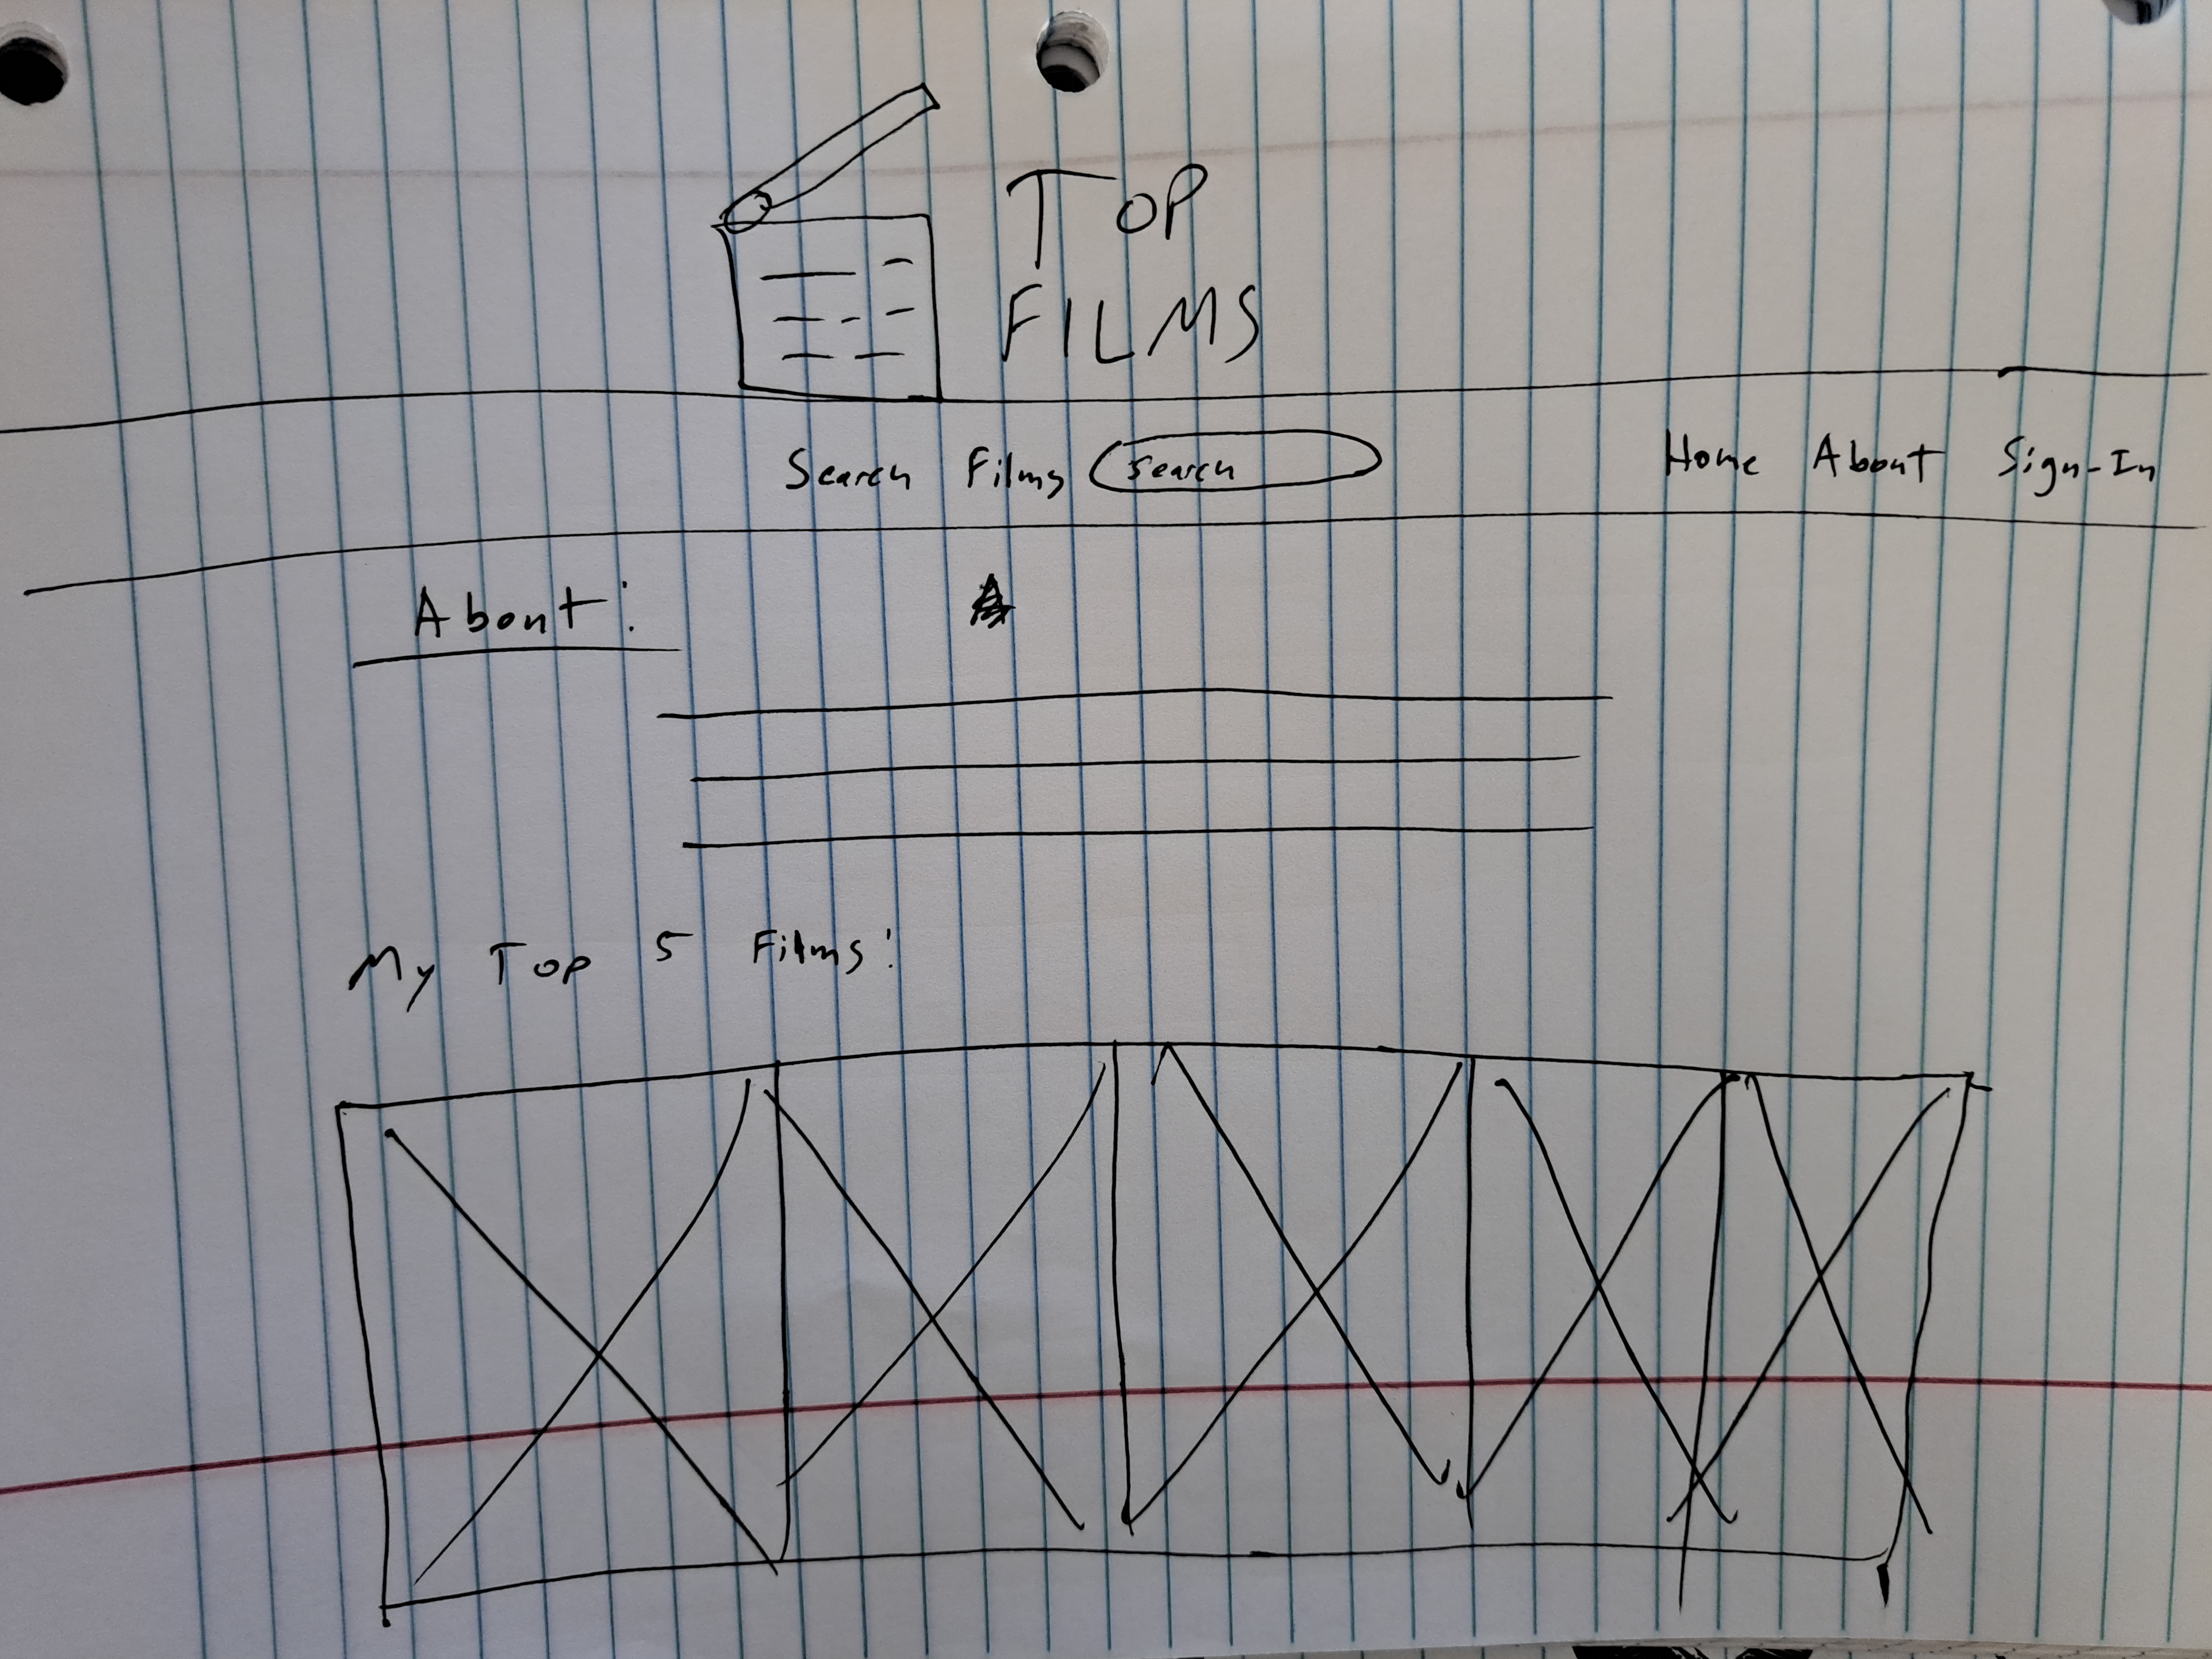 TOP
FILMS
Search Films search Home About Sign-In
About:
My Top 5 Films: